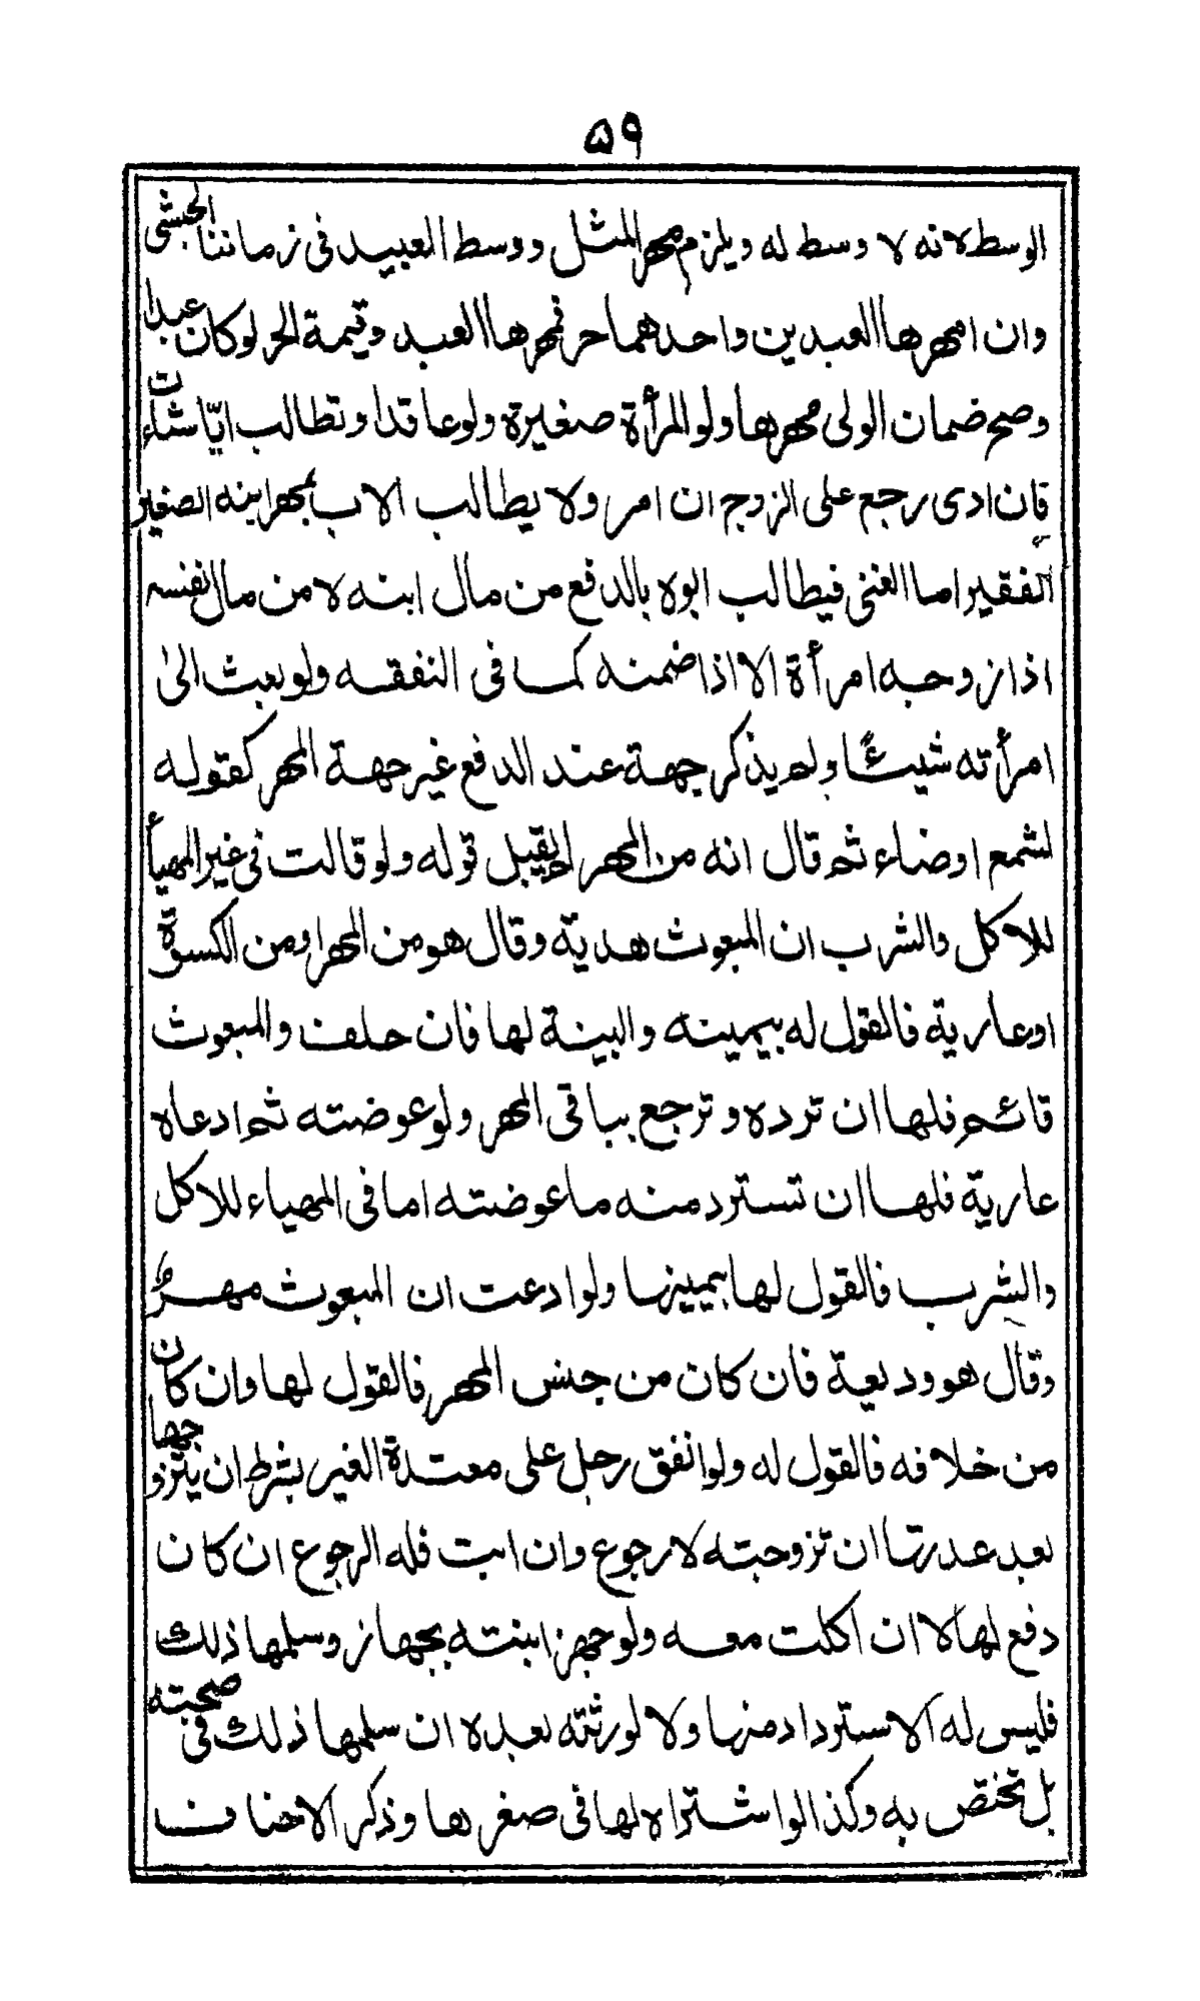 ۵۹
الوسط لانه لا وسط له ويلزم مهر المثل ووسط العبيد فى زماننا الحبشى
وان امهرها العبدين واحدهما حر فمهرها العبد وقيمة الحر لو كان عبدا
وصح ضمان الولى مهرها ولو المرأة صغيرة ولو عاقدا وتطالب ايّا شاءت
فان ادى رجع على الزوج ان امر ولا يطالب الاب بمهر ابنه الصغير
الفقير اما الغنى فيطالب ابوه بالدفع من مال ابنه لا من مال نفسه
اذا زوجه امرأة الا اذا ضمنه كما فى النفقه ولو بعث الىٰ
امرأته شيئًا ولم يذكر جهة عند الدفع غير جهة المهر كقوله
لشمع او ضاء ثم قال انه من المهر لم يقبل قوله ولو قالت فى غير المهيأ
للاكل والشرب ان المبعوث هدية وقال هو من المهر او من الكسوة
او عارية فالقول له بيمينه والبينة لها فان حلف والمبعوث
قائم فلها ان ترده وترجع بباقى المهر ولو عوضته ثم ادعاه
عارية فلها ان تسترد منه ما عوضته اما فى المهياء للاكل
والشرب فالقول لها بيمينها ولو ادعت ان المبعوث مهرٌ
وقال هو وديعة فان كان من جنس المهر فالقول لها وان كان
من خلافه فالقول له ولو انفق رجل على معتدة الغير بشرط ان يتزوجها
بعد عدتها ان تزوجته لا رجوع وان ابت فله الرجوع ان كان
دفع لها لا ان اكلت معه ولو جهز ابنته بجهاز وسلمها ذلك
فليس له الاسترداد منها ولا لورثته بعده ان سلمها ذلك فى صحبته
بل تختص به وكذا لو اشتراه لها فى صغرها وذكر الاحناف